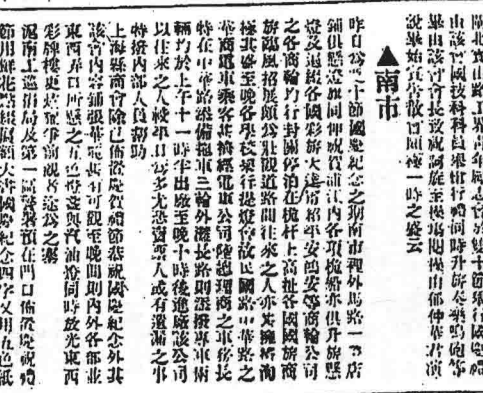 由該會國技科科員舉行禮同時升旂奏樂鳴砲等
畢由該會會長致祝詞旋至操場開操由郁仲華君演
說畢始宣告散會極一時之盛云
▲南市
昨日為雙十節國慶紀念之期南市裡外馬路一帶店
鋪俱懸燈旗同伸祝賀浦江內各項桅船亦俱升旂懸
燈及遍綴各國彩旂大達甯紹平安鴻安等商輪公司
之各商輪均行封關停泊在桅杆上高扯各國國旂商
旂臨風招展頗為壯觀道路間往來之人亦甚擁擠洵
極其盛至晚各學校舉行提燈會故民國路中華路之
華商電車乘客甚擠經電車公司陸總理商之車務長
特在中華路添備拖車三輛外灘長路則添撥專車兩
輛均於上午十一時半出廠至晚十時後進廠該公司
以往來之人較平日為多尤恐賣票人或有遺漏之事
特派內部人員幫助
上海縣商會除已佈置慶賀禮節恭祝國慶紀念外其
該會內容鋪張華麗甚有可觀至晚間則內外各部並
東西弄口所懸之五色燈彩與汽油燈同時放光東西
彩牌樓更爭前觀者途為之塞
滬南工巡捐局及第一區警署預在門口佈置慶祝
節用鮮花綴匾額大書國慶紀念四字又用五色紙